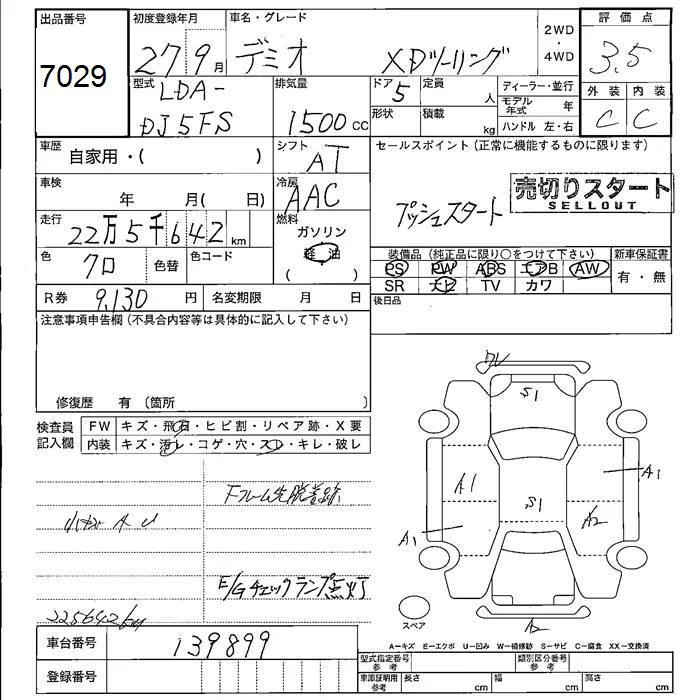 出品番号 初度登録年月 車名・グレード 2WD ・ 4WD 評価点
7029 27 9月 デミオ XDツーリング 3.5
外装 内装
C C
型式 LDA-
DJ5FS
排気量 1500 CC
ドア 5 定員 人
形状 積載 kg
ディーラー・並行
モデル年式 年
ハンドル 左・右
車歴 自家用・( )
シフト AT
セールスポイント (正常に機能するものに限ります)
車検 年 月( 日)
冷房 AAC
売切りスタート
SELLOUT
プッシュスタート
走行 22万5千642 km
燃料 ガソリン
軽油
( )
色 クロ 色替 色コード
装備品 (純正品に限り○をつけて下さい) 新車保証書
PS PW ABS エアB AW 有・無
SR ナビ TV カワ
後日品
R券 9,130 円 名変期限 月 日
注意事項申告欄 (不具合内容等は具体的に記入して下さい)
修復歴 有 (箇所 )
検査員記入欄
FW キズ・飛石・ヒビ割・リペア跡・X要
内装 キズ・汚レ・コゲ・穴・スレ・キレ・破レ
Fフレーム先脱着跡
小キズ A U
E/Gチェックランプ点灯
225642km
W
S1
A1 A1
S1
A2
A1
スペア
A2
A=キズ E=エクボ U=凹み W=補修跡 S=サビ C=腐食 XX=交換済
車台番号 139899
登録番号
型式指定番号 参考 類別区分番号 参考
車庫証明用 参考 長さ cm 幅 cm 高さ cm